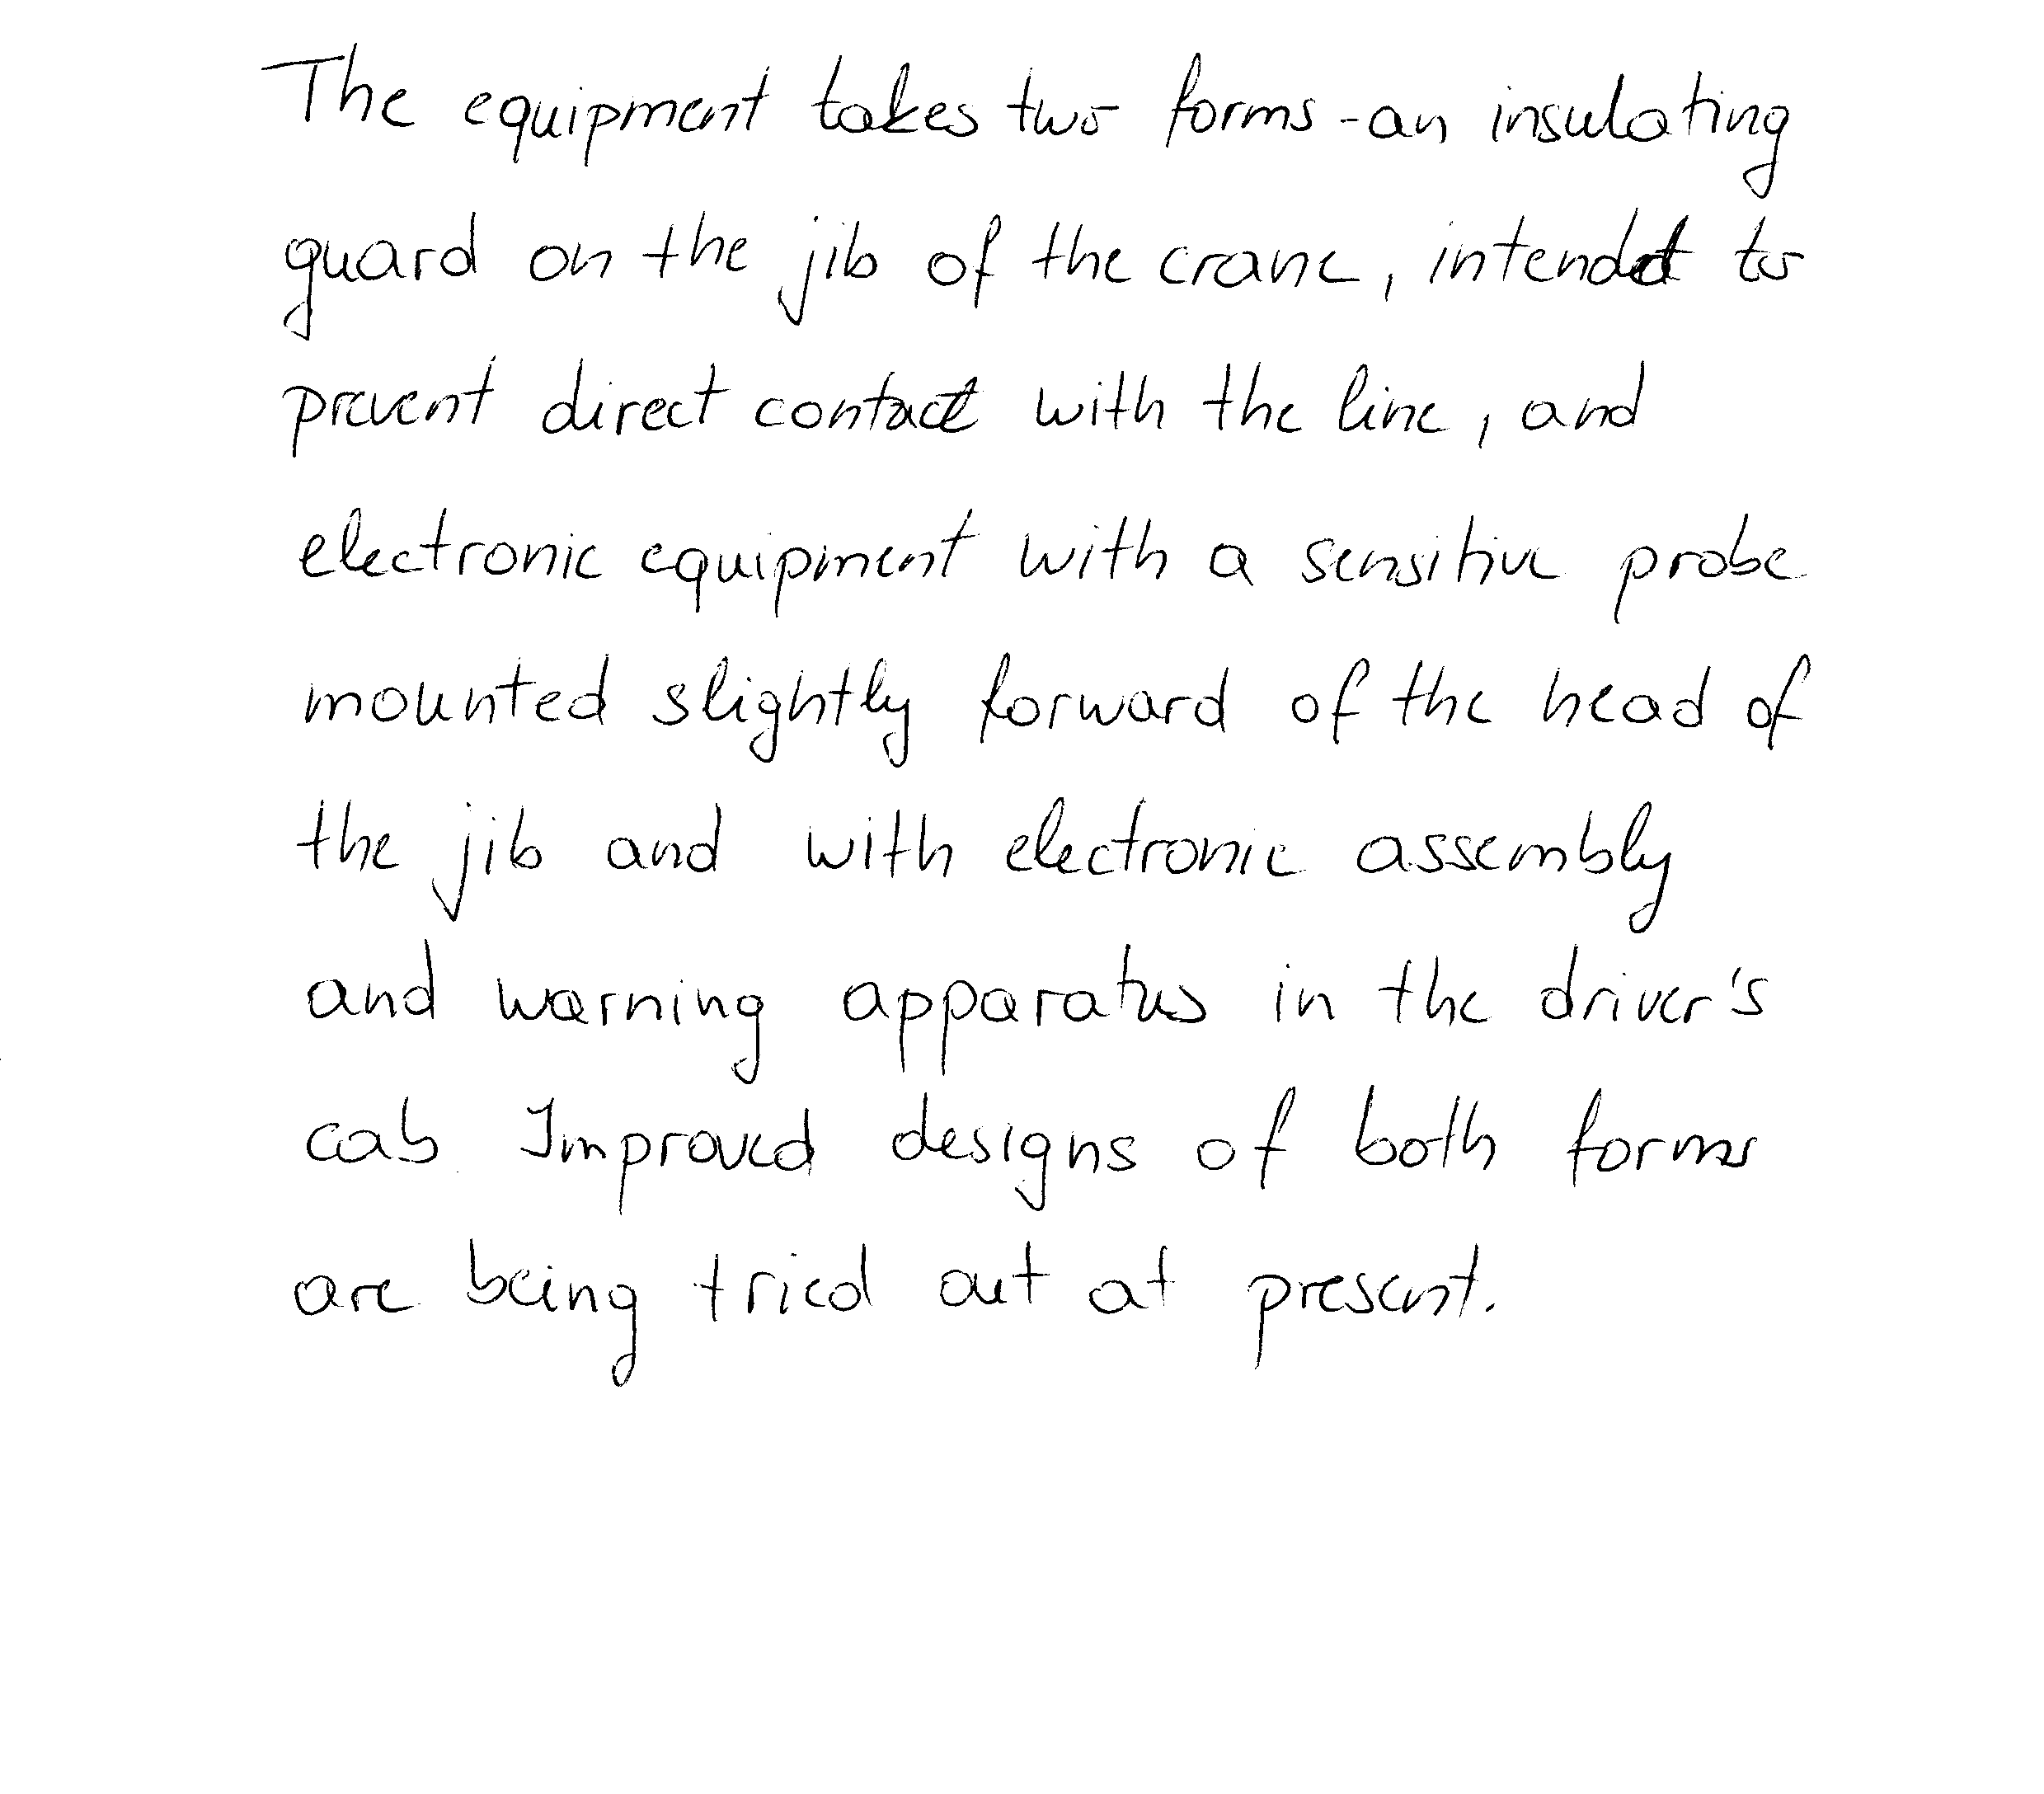 The equipment takes two forms - an insulating
guard on the jib of the crane, intended to
prevent direct contact with the line, and
electronic equipment with a sensitive probe
mounted slightly forward of the head of
the jib and with electronic assembly
and warning apparatus in the driver's
cab. Improved designs of both forms
are being tried out at present.